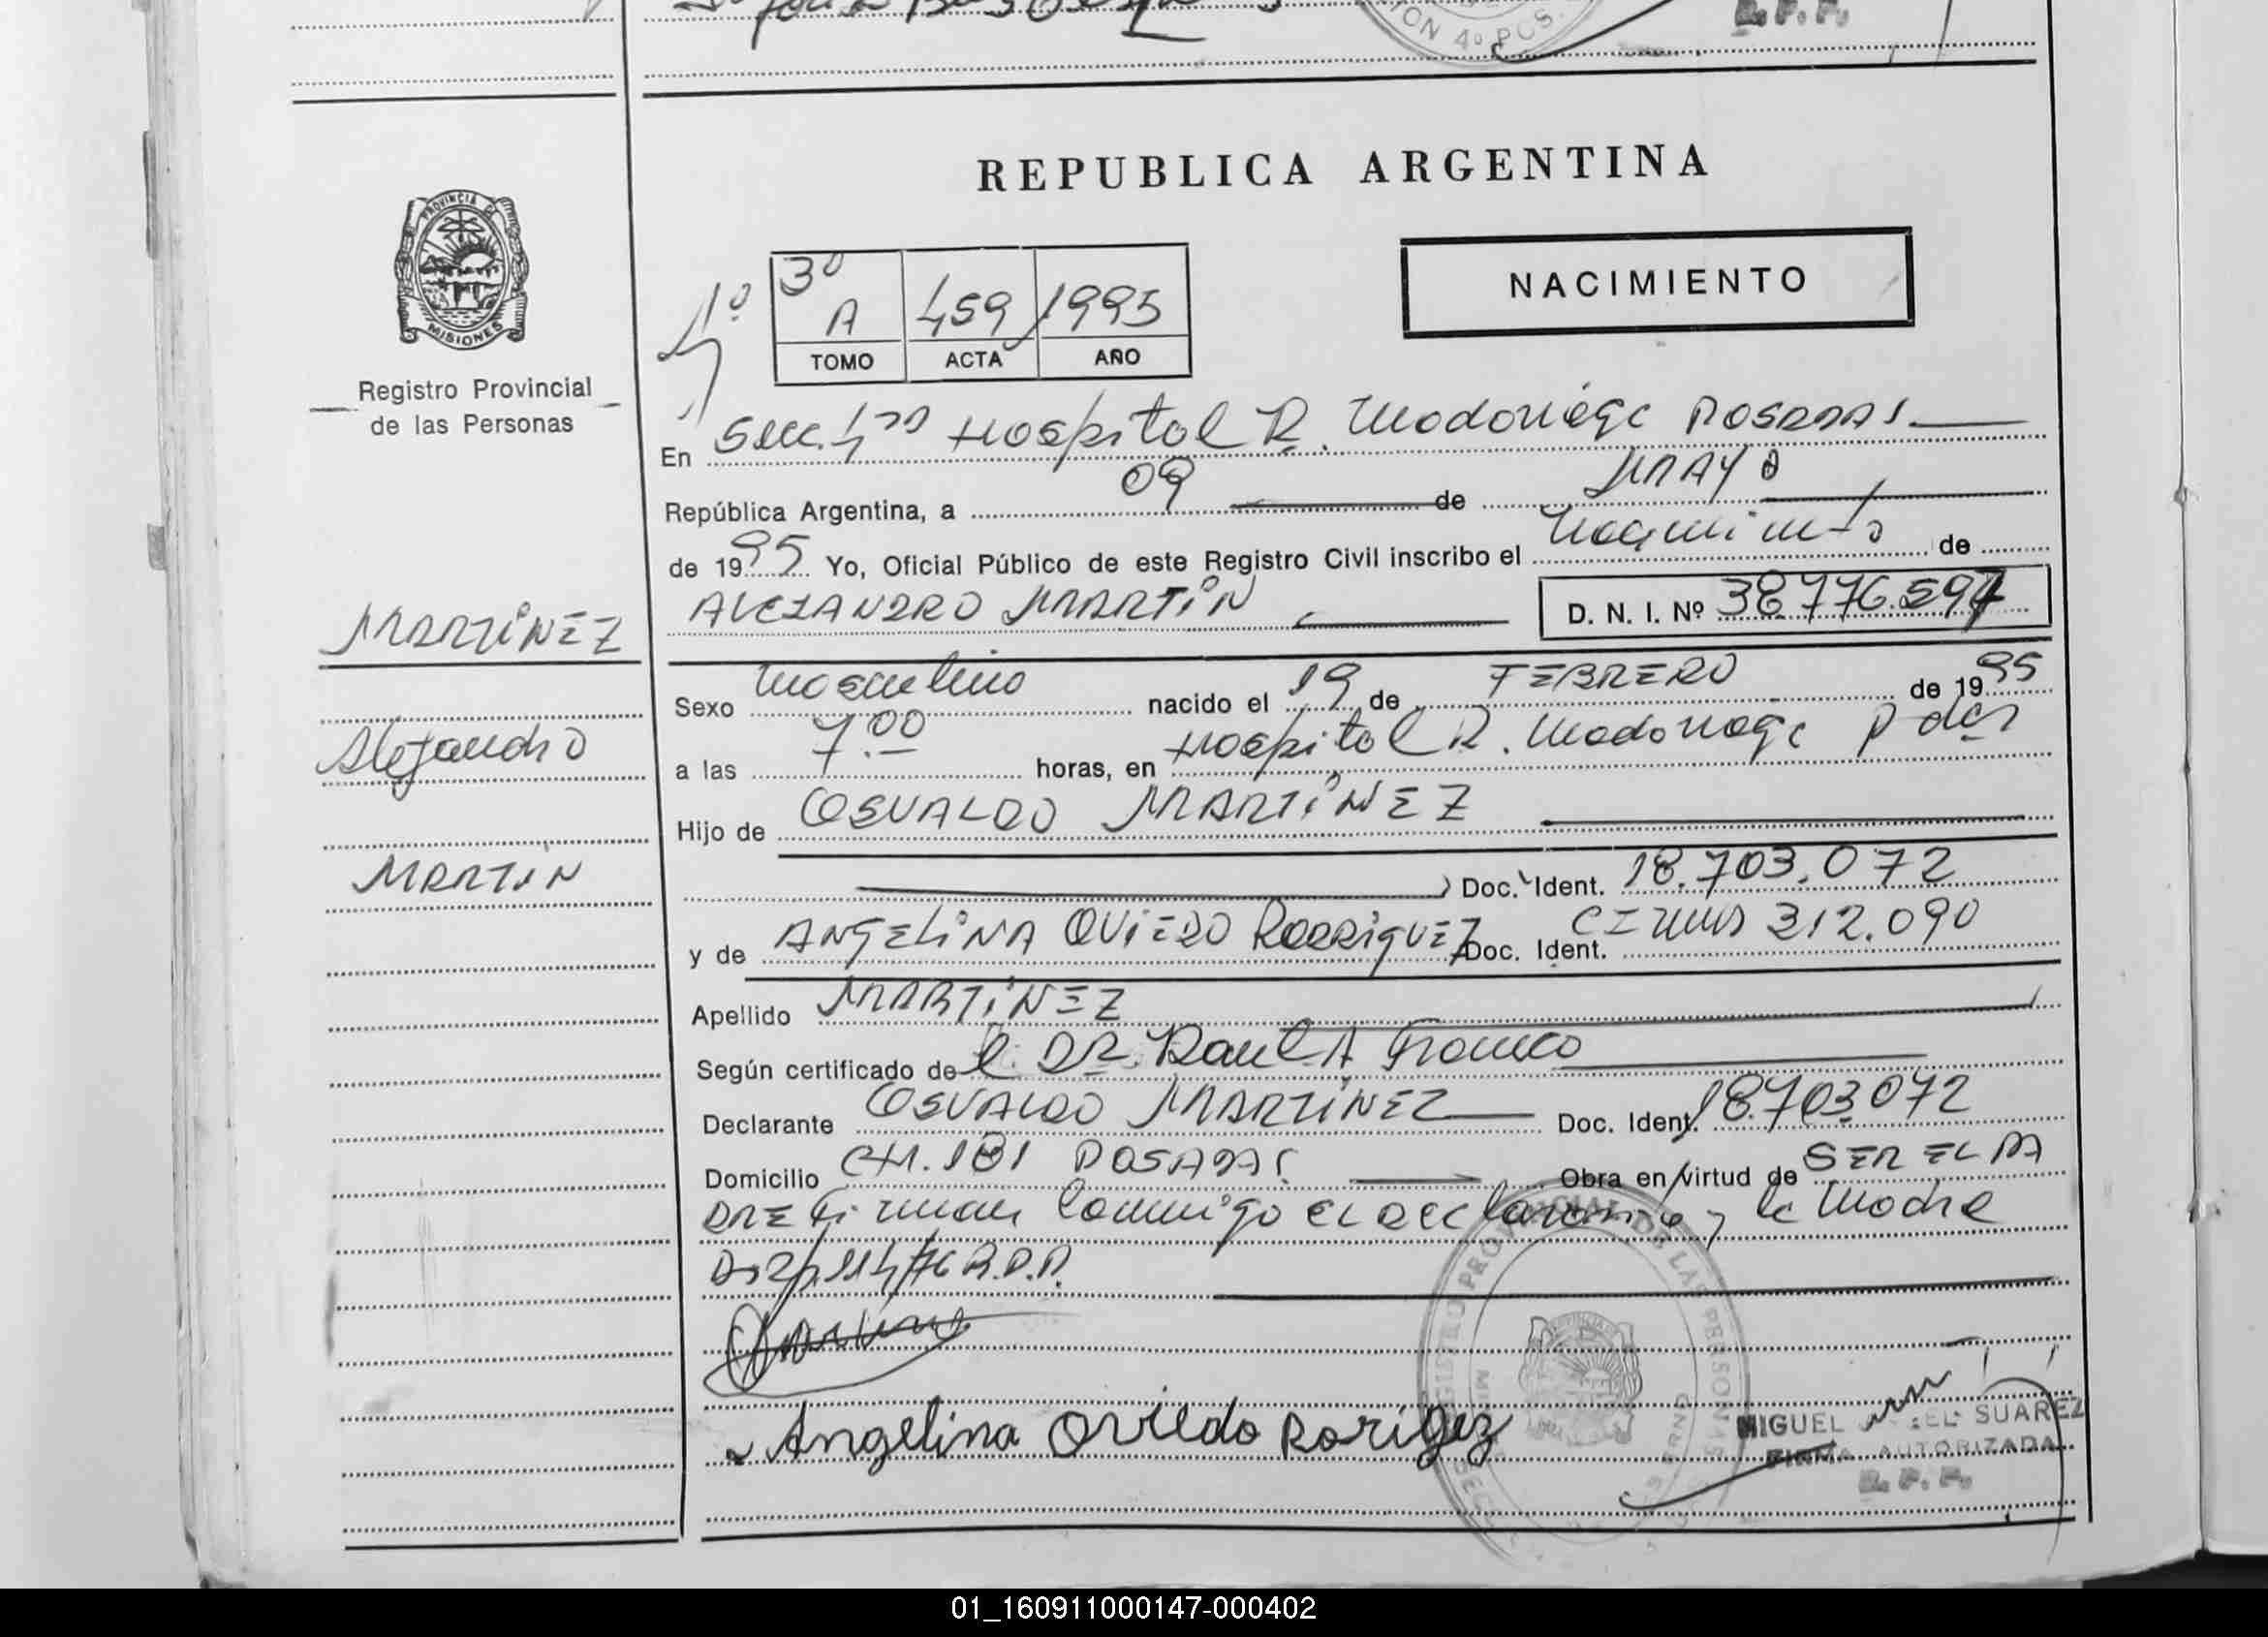 REPUBLICA ARGENTINA
NACIMIENTO
PROVINCIA DE
MISIONES
Registro Provincial
de las Personas
4º
3º
A 459 1995
TOMO ACTA AÑO
En Secc. 4ta Hospital R. Madariaga POSADAS
República Argentina, a 09 de MAYO
de 1995 Yo, Oficial Público de este Registro Civil inscribo el Nacimiento de
ALEJANDRO MARTíN D. N. I. Nº 38776.597
MARTíNEZ
Sexo Masculino nacido el 19 de FEBRERO de 1995
Alejandro
a las 7.00 horas, en Hospital R. Madariaga Pdas
Hijo de OSVALDO MARTíNEZ
MARTIN
Doc. Ident. 18.703.072
y de ANGELiNA OViEDO RODRiGUEZ Doc. Ident. 312.090
Apellido MARTiNEZ
Según certificado del DR. Raul A Franco
Declarante OSVALDO MARTíNEZ Doc. Ident. 18.703.072
Domicilio CH. 181 POSADAS Obra en virtud de SER EL PA
DRE Firman conmigo EL DECLARANTE y la Madre
R.P.P.
Angelina Oviedo Rorigez
MIGUEL SUAREZ
FIRMA AUTORIZADA
R. P. P.
REGISTRO PROVINCIAL DE LAS PERSONAS
01_160911000147-000402